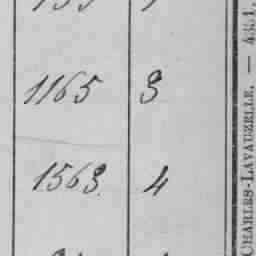 1165 3
1563. 4
CHARLES-LAVAUZELLE. —